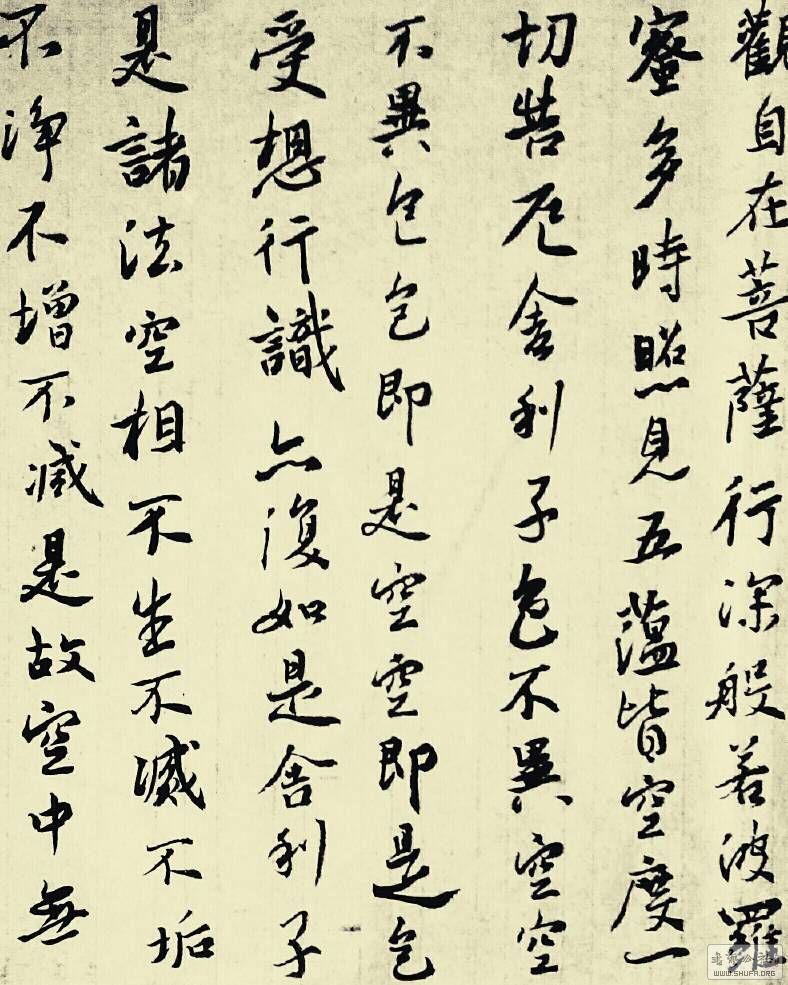 觀自在菩薩行深般若波羅
蜜多時照見五蘊皆空度一
切苦厄舍利子色不異空空
不異色色即是空空即是色
受想行識亦復如是舍利子
是諸法空相不生不滅不垢
不淨不增不減是故空中無
WWW.SHUFA.ORG